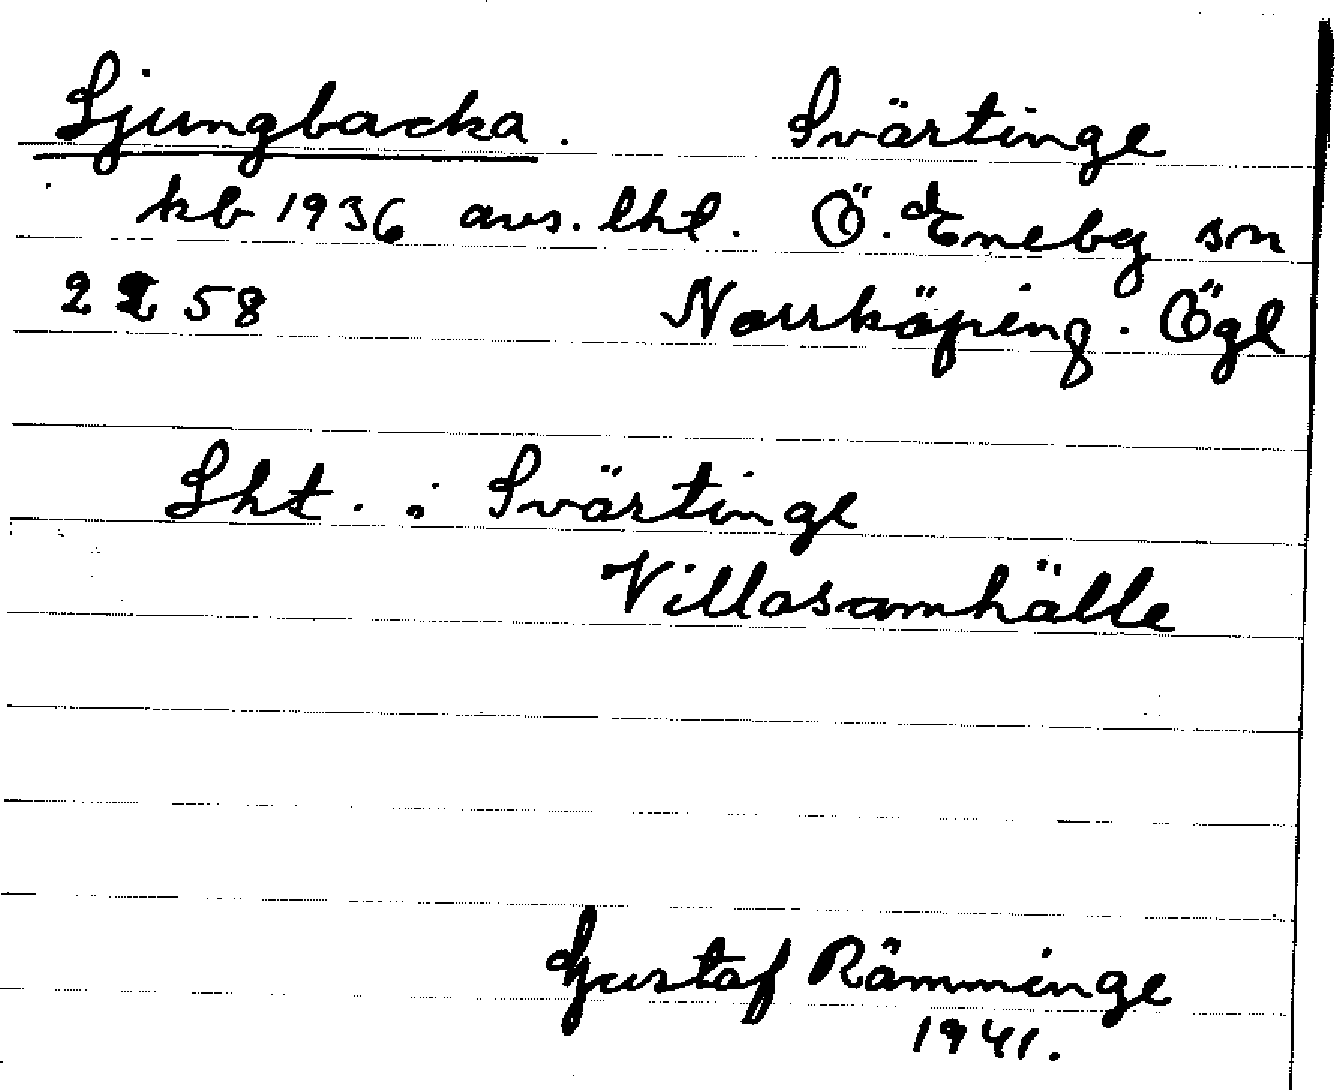 Ljungbacka. Svärtinge
kb 1936 avs. lht. Ö. Eneby sn
2 2 58 Norrköping. Ögl
Lht. : Svärtinge
Villasamhälle
Gustaf Rämminge
1941.